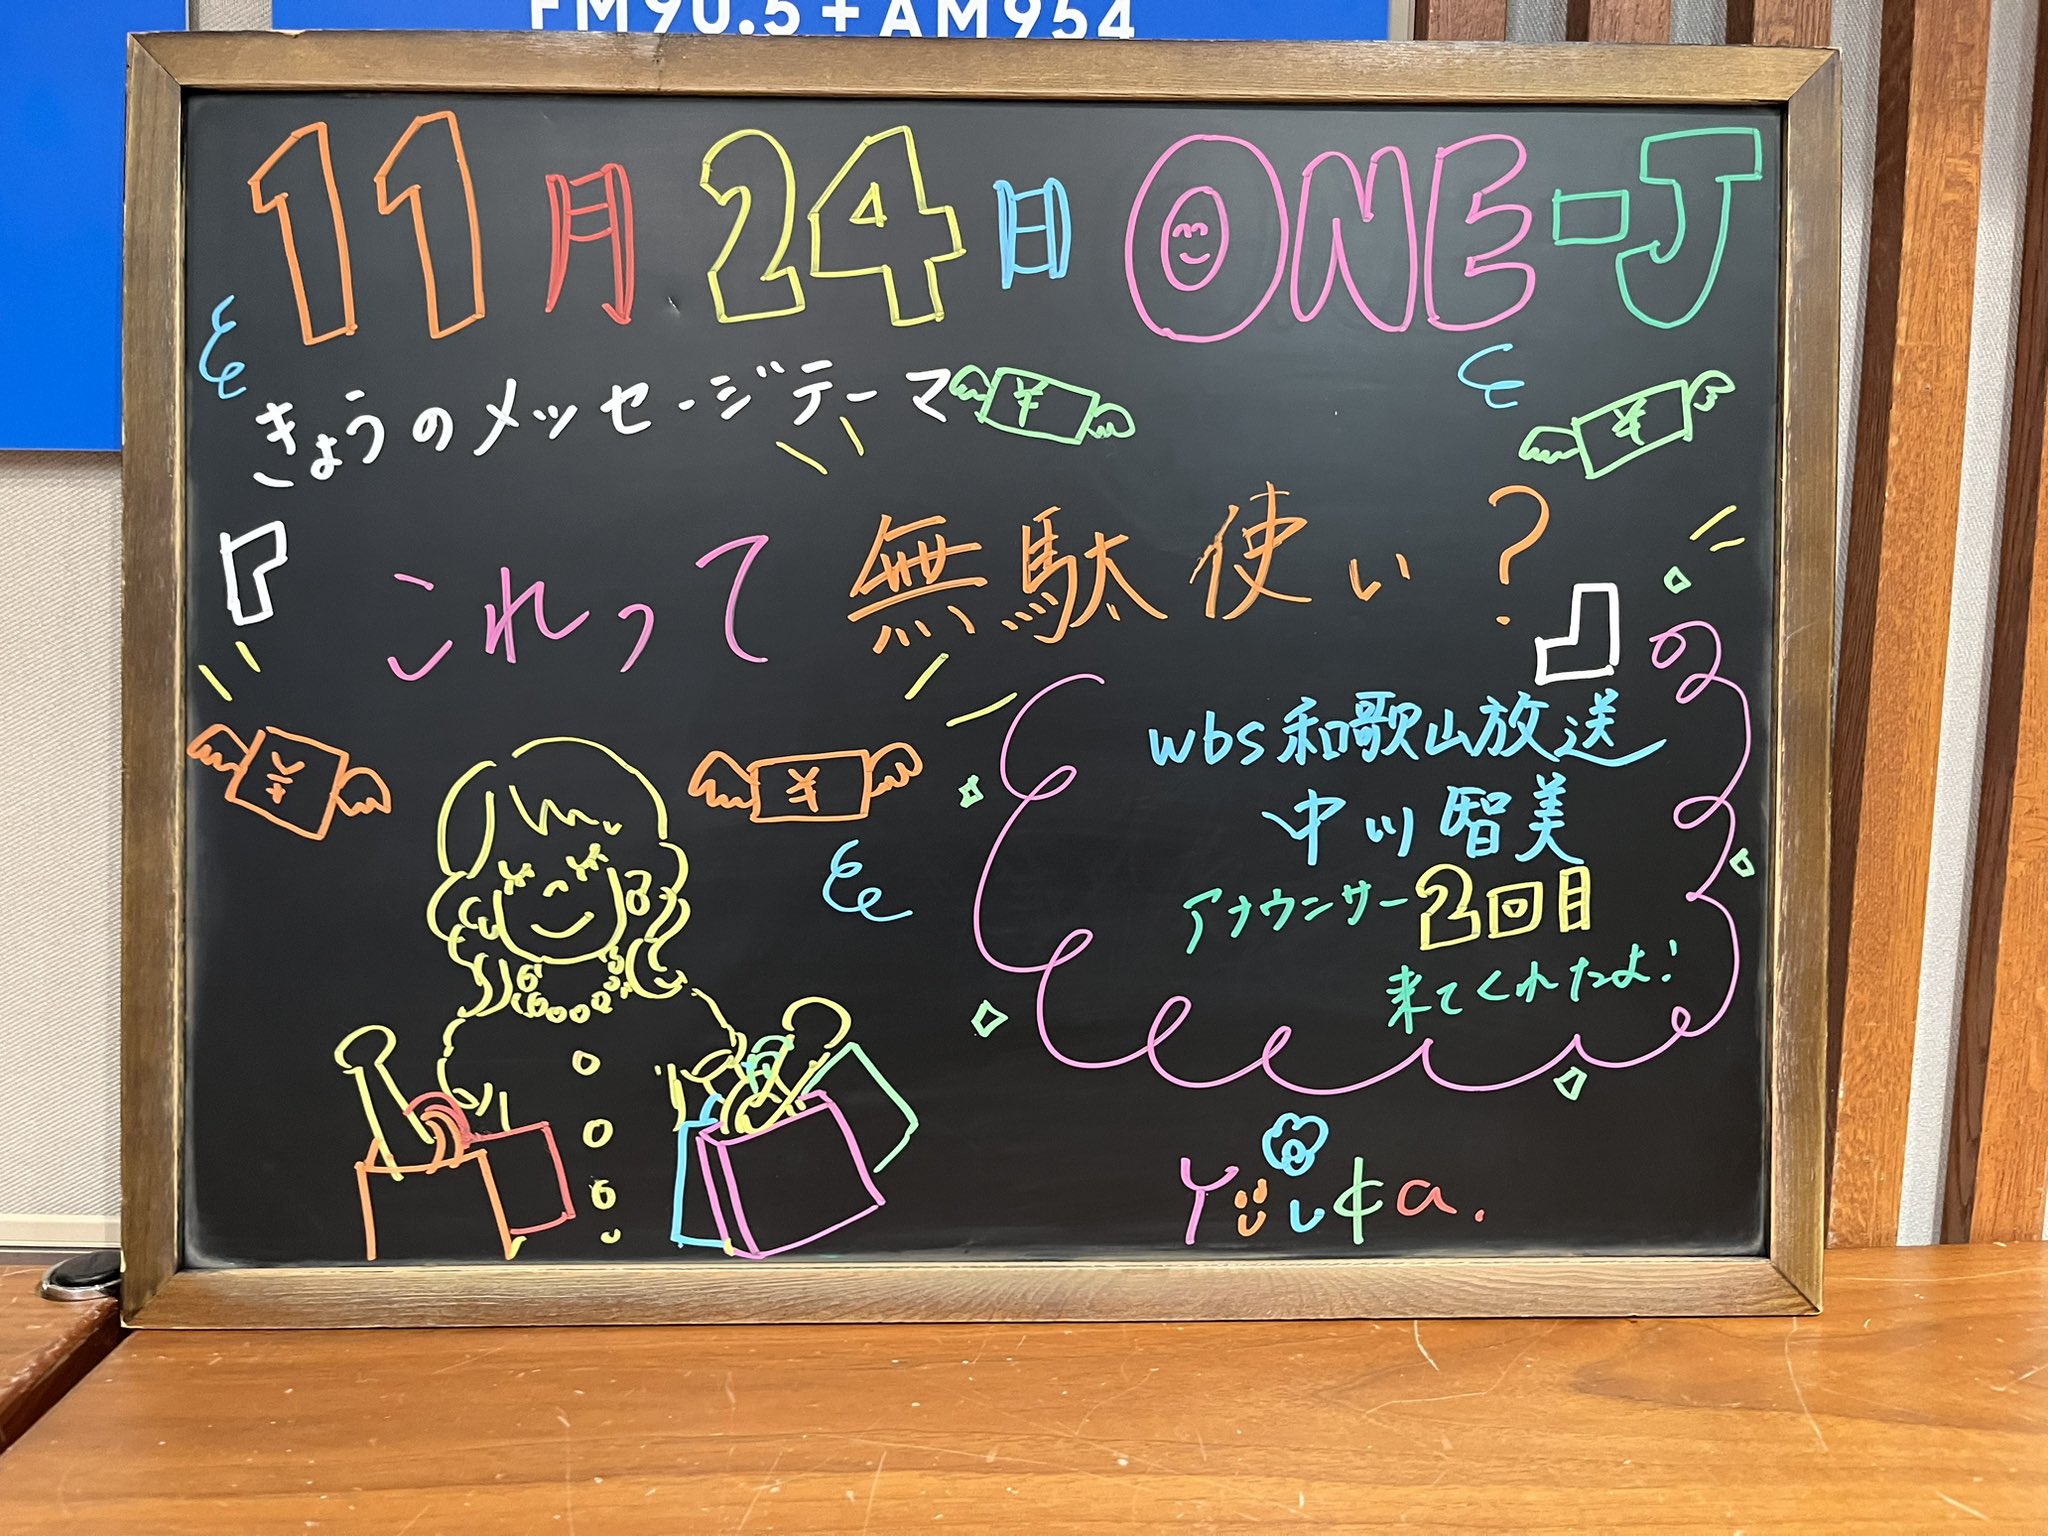 FM90.5+AM954
11月24日 ONE-J
きょうのメッセージテーマ
『これって無駄使い?』
wbs和歌山放送
中川智美
アナウンサー2回目
来てくれたよ!
Yuuka.
¥
¥
¥
¥